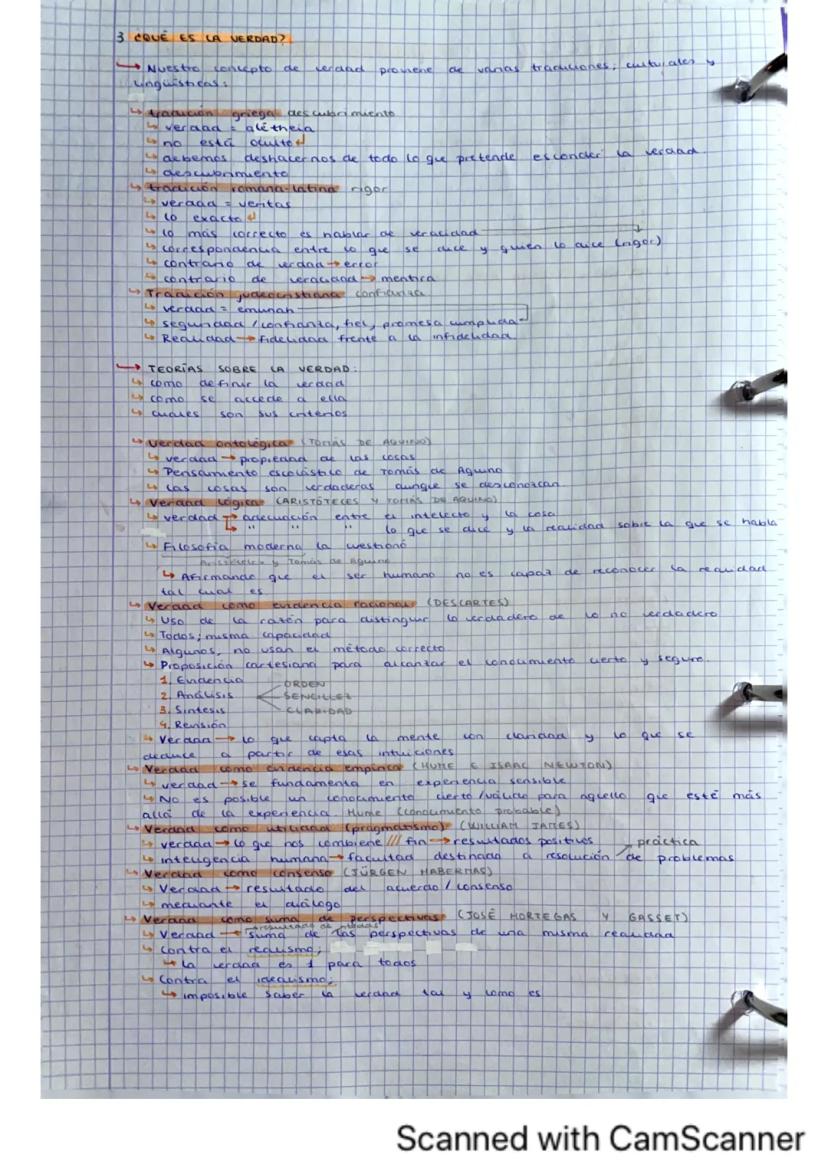 3 ¿QUÉ ES LA VERDAD?
→ Nuestro concepto de verdad proviene de varias tradiciones; culturales y
lingüísticas:
↳ tradición griega descubrimiento
↳ verdad = alétheia
↳ no está oculto
↳ debemos deshacernos de todo lo que pretende esconder la verdad.
↳ descubrimiento
↳ tradición romana-latina rigor
↳ verdad = veritas
↳ lo exacto
↳ lo más correcto es hablar de veracidad
↳ correspondencia entre lo que se dice y quien lo dice (rigor)
↳ contrario de verdad → error
↳ contrario de veracidad → mentira
↳ Tradición judeocristiana confianza
↳ verdad = emunah
↳ seguridad / confianza, fiel, promesa cumplida
↳ Realidad → fidelidad frente a la infidelidad
→ TEORÍAS SOBRE LA VERDAD:
↳ como definir la verdad
↳ como se accede a ella
↳ cuales son sus criterios
↳ Verdad ontológica (TOMÁS DE AQUINO)
↳ verdad → propiedad de las cosas
↳ Pensamiento escolástico de Tomás de Aquino
↳ Las cosas son verdaderas aunque se desconozcan.
↳ Verdad lógica (ARISTÓTECES Y TOMÁS DE AQUINO)
↳ verdad → adecuación entre el intelecto y la cosa
↳ " " " lo que se dice y la realidad sobre la que se habla
↳ Filosofía moderna la cuestionó
Aristóteles y Tomás de Aquino
↳ Afirmando que el ser humano no es capaz de reconocer la realidad
tal cual es
↳ Verdad como evidencia racional (DESCARTES)
↳ Uso de la razón para distinguir lo verdadero de lo no verdadero
↳ Todos; misma capacidad
↳ Algunos, no usan el método correcto
↳ Proposición cartesiana para alcanzar el conocimiento cierto y seguro.
1. Evidencia ORDEN
2. Análisis SENCILLEZ
3. Síntesis CLARIDAD
4. Revisión
↳ Verdad → lo que capta la mente con claridad y lo que se
deduce a partir de esas intuiciones
↳ Verdad como evidencia empírica (HUME E ISAAC NEWTON)
↳ verdad → se fundamenta en experiencia sensible
↳ No es posible un conocimiento cierto/válido para aquello que esté más
allá de la experiencia. Hume (conocimiento probable)
↳ Verdad como utilidad (pragmatismo) (WILLIAM JAMES)
↳ verdad → lo que nos combiene /// fin → resultados positivos práctica
↳ inteligencia humana → facultad destinada a resolución de problemas
↳ Verdad como consenso (JÜRGEN HABERMAS)
↳ Verdad → resultado del acuerdo / consenso
↳ mediante el diálogo
↳ Verdad como suma de perspectivas (JOSÉ HORTEGAS Y GASSET)
↳ Verdad → suma de las perspectivas de una misma realidad
↳ contra el realismo;
↳ La verdad es 1 para todos
↳ Contra el idealismo:
↳ imposible saber la verdad tal y como es
Scanned with CamScanner